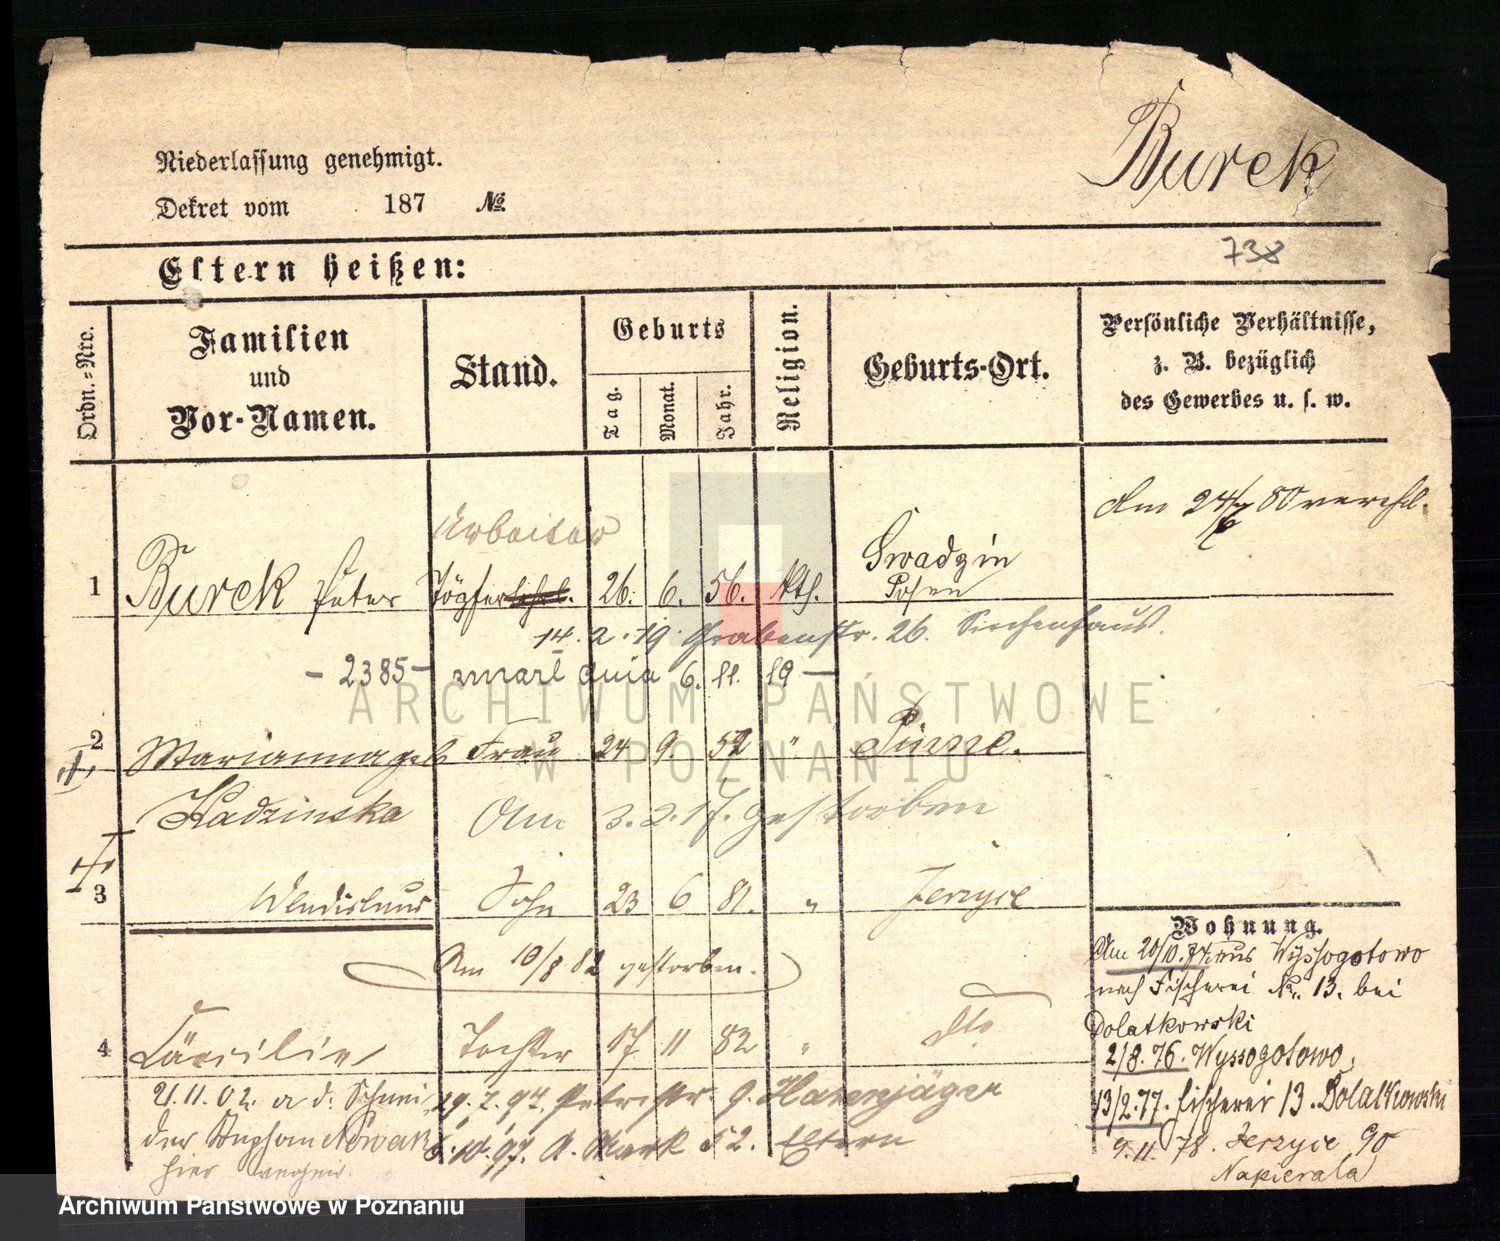 Burek
Niederlassung genehmigt.
Dekret vom 187 №
738
Eltern heißen:
Ordn.-Nro.
Familien
und
Vor-Namen.
Stand.
Geburts
Tag.
Monat.
Jahr.
Religion.
Geburts-Ort.
Persönliche Verhältnisse,
z. B. bezüglich
des Gewerbes u. s. w.
Am 24/7 80 verehel.
Arbeiter
1 Burek Peter Töpfer 26. 6. 56. kth. Swadzin
Posen
14. 2. 19 Grabenstr. 26. Siechenhaus.
- 2385 - zmarł dnia 6. 11. 19 -
2 Marianna geb Frau 24 9. 52 " Pinne.
Kadzinska Am 3. 2. 17. gestorben
3 Wladislaus Sohn 23 6 81. " Jerzyce
Am 10/8 82 gestorben.
4 Cäcilie Tochter 17 11 82 " dto
21.11.02. a d. Schnei
der Stephan Nowak
hier
29.7.97. Petristr. 9. Hannjäger
5.10.97. A. Markt 52. Eltern
Wohnung.
Am 20/10. 74. aus Wyssogotowo
nach Fischerei No. 13. bei
Dolatkowski
2/8. 76. Wyssogotowo.
13/2. 77. Fischerei 13. Dolatkowski
9. 11. 78. Jerzyce 90
Napierala
ARCHIWUM PAŃSTWOWE
W POZNANIU
Archiwum Państwowe w Poznaniu